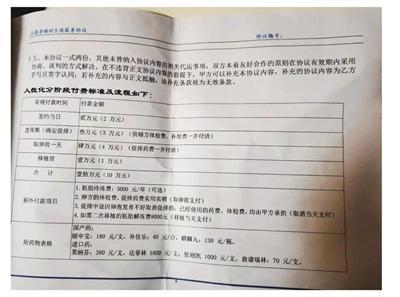 协议编号：
十五、本协议一式两份，其他未曾纳入协议内容的相关代运事项，双方本着友好合作的原则在协议有效期内采用
协商、谈判的方式解决。在不违背正文协议内容的前提下，甲方可以补充本协议内容，补充的协议内容为乙方
手写且签字认同；若补充的内容与正文抵触，该补充条款视为无效条款。
人性化分阶段付费标准及流程如下：
常规付款时间 付款金额
签约当日 贰万元（2 万元）
进周期（确定促排） 叁万元（3 万元）（供精方体检费，补偿费一并付清）
取卵前一天 肆万元（4 万元）（促排药费一并付清）
移植前 壹万元（1 万元）
合 计 壹拾万元（10 万元）
额外付款项目
1. 胚胎冷冻费：5000 元/年（可选）
2. 卵方的体检费，促排药费实用实销（取卵前支付）
3. 促排中途因卵泡发育不好取消促排的，已经使用的药费、体检费，均由甲方承担（取消当天支付）
4. 如需二次移植的胚胎解冻费8000元（移植当天支付）
附药物表格
国产药：
丽申宝：180 元/支，补佳乐：40 元/合，麒麟丸：130 元/瓶。
进口药：
果纳芬：380 元/支，达菲林 1800 元/支，思则凯 1000 元/支，曲谱瑞林：70 元/支。